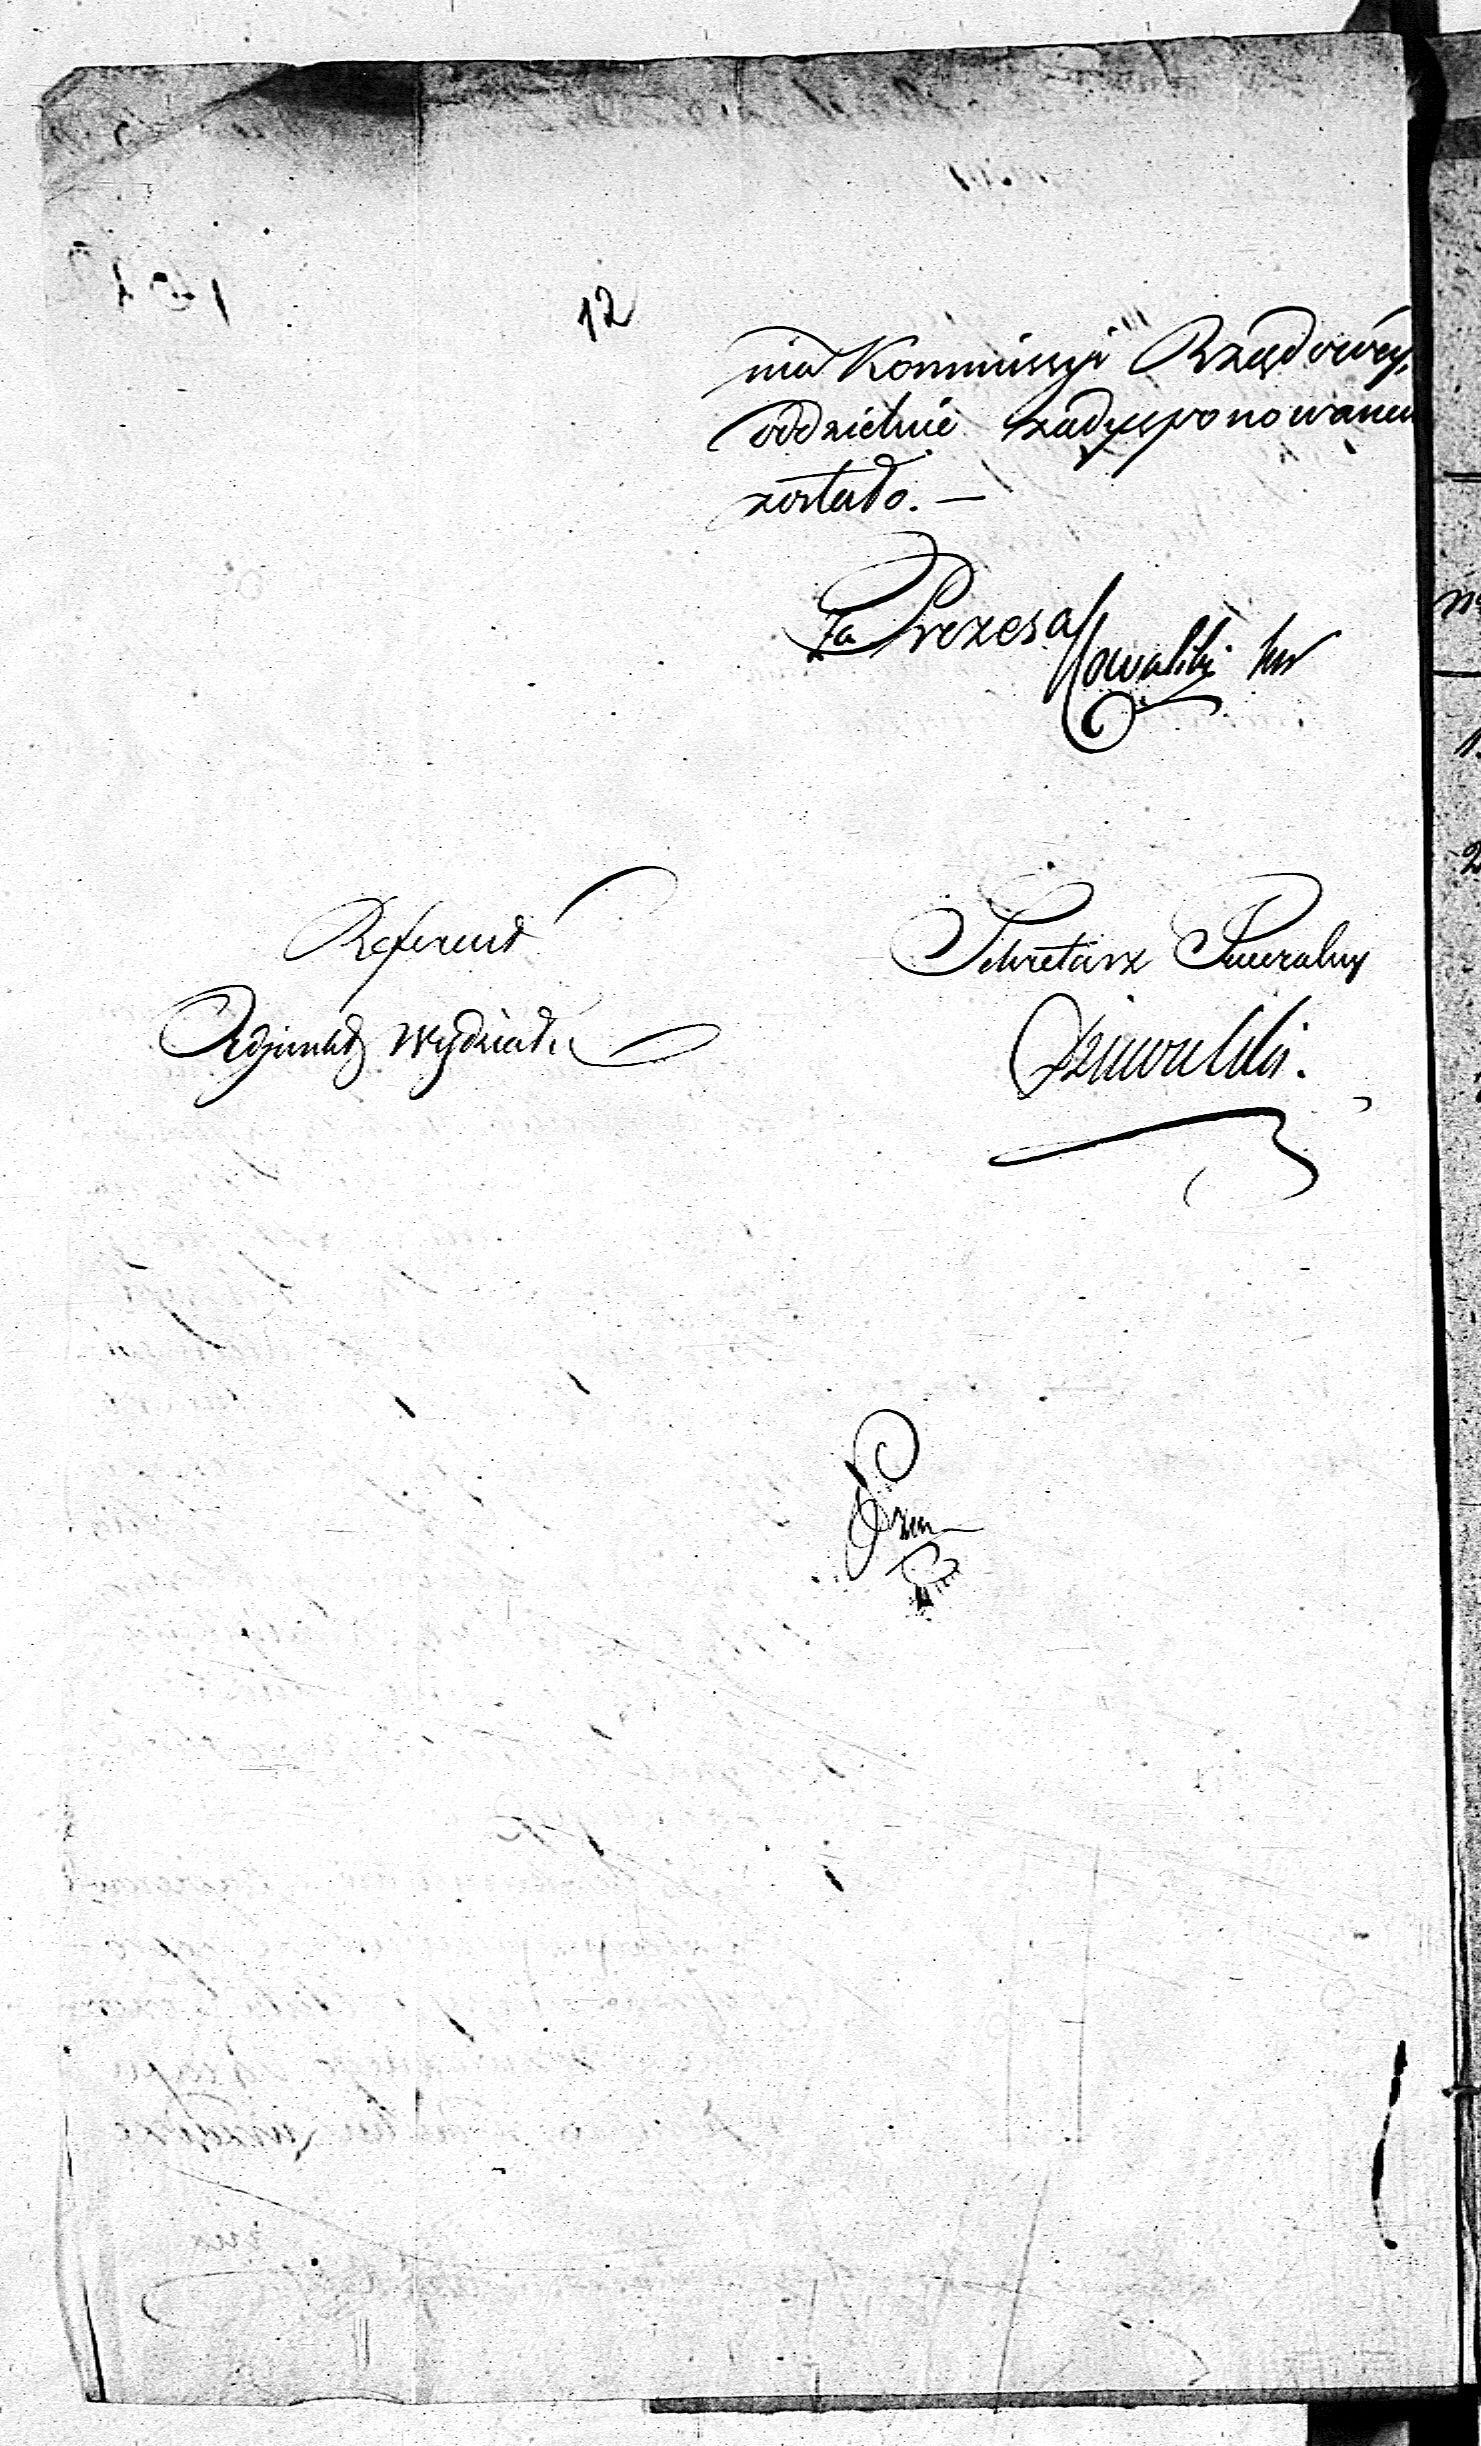 12
nia Kommissyi Rządowey,
oddzielnie zadysponowanem
zostało. —
Za Prezesa
Kowalski
Referent
Adjunkt Wydziału
Sekretarz Jeneralny